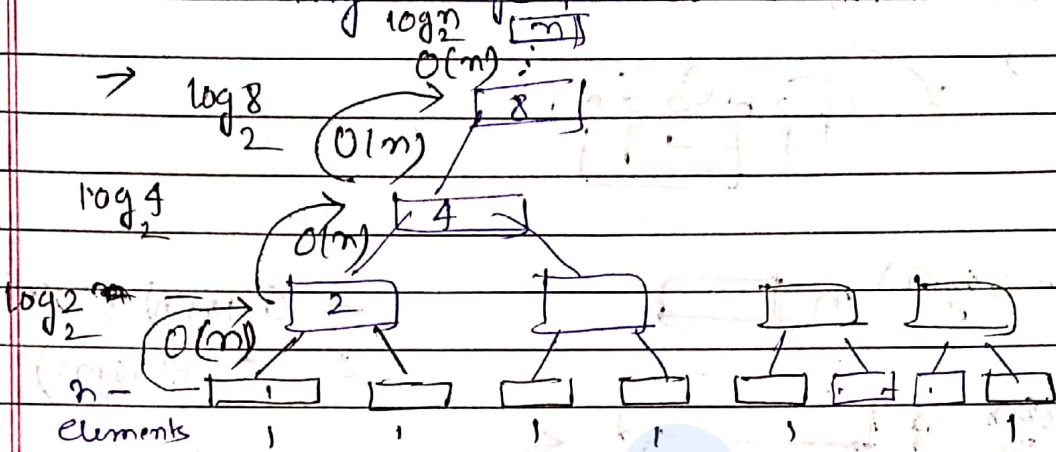 log₂n [n]
O(n)
→ log₂8 8
O(n)
log₂4 4
O(n)
log₂2 2
O(n)
n - 1
elements 1 1 1 1 1 1